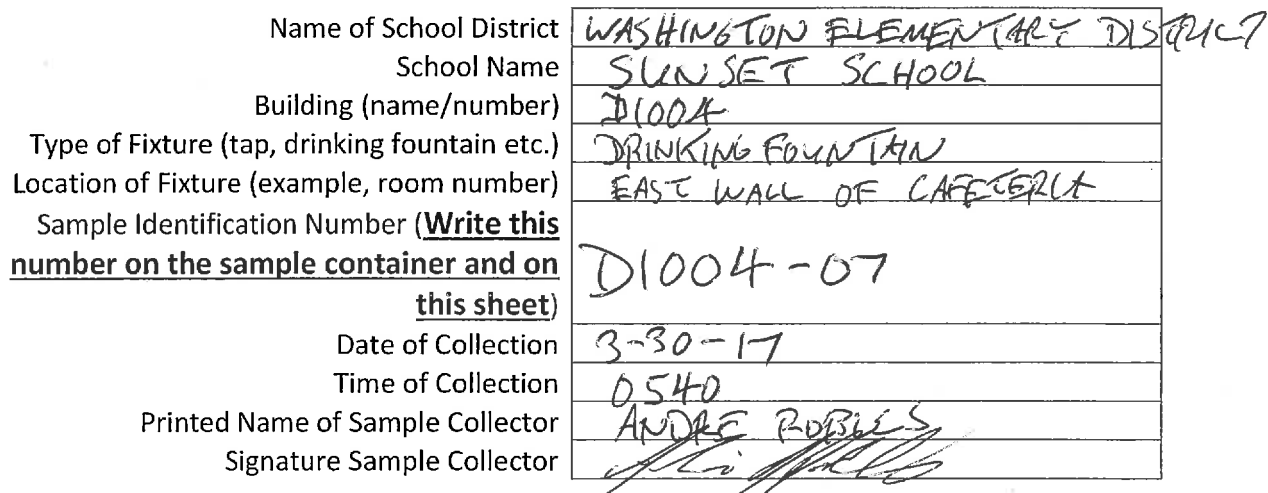 Name of School District WASHINGTON ELEMENTARY DISTRICT
School Name SUNSET SCHOOL
Building (name/number) D1004
Type of Fixture (tap, drinking fountain etc.) DRINKING FOUNTAIN
Location of Fixture (example, room number) EAST WALL OF CAFETERIA
Sample Identification Number (Write this
number on the sample container and on
this sheet) D1004-07
Date of Collection 3-30-17
Time of Collection 0540
Printed Name of Sample Collector ANDRE ROBLES
Signature Sample Collector